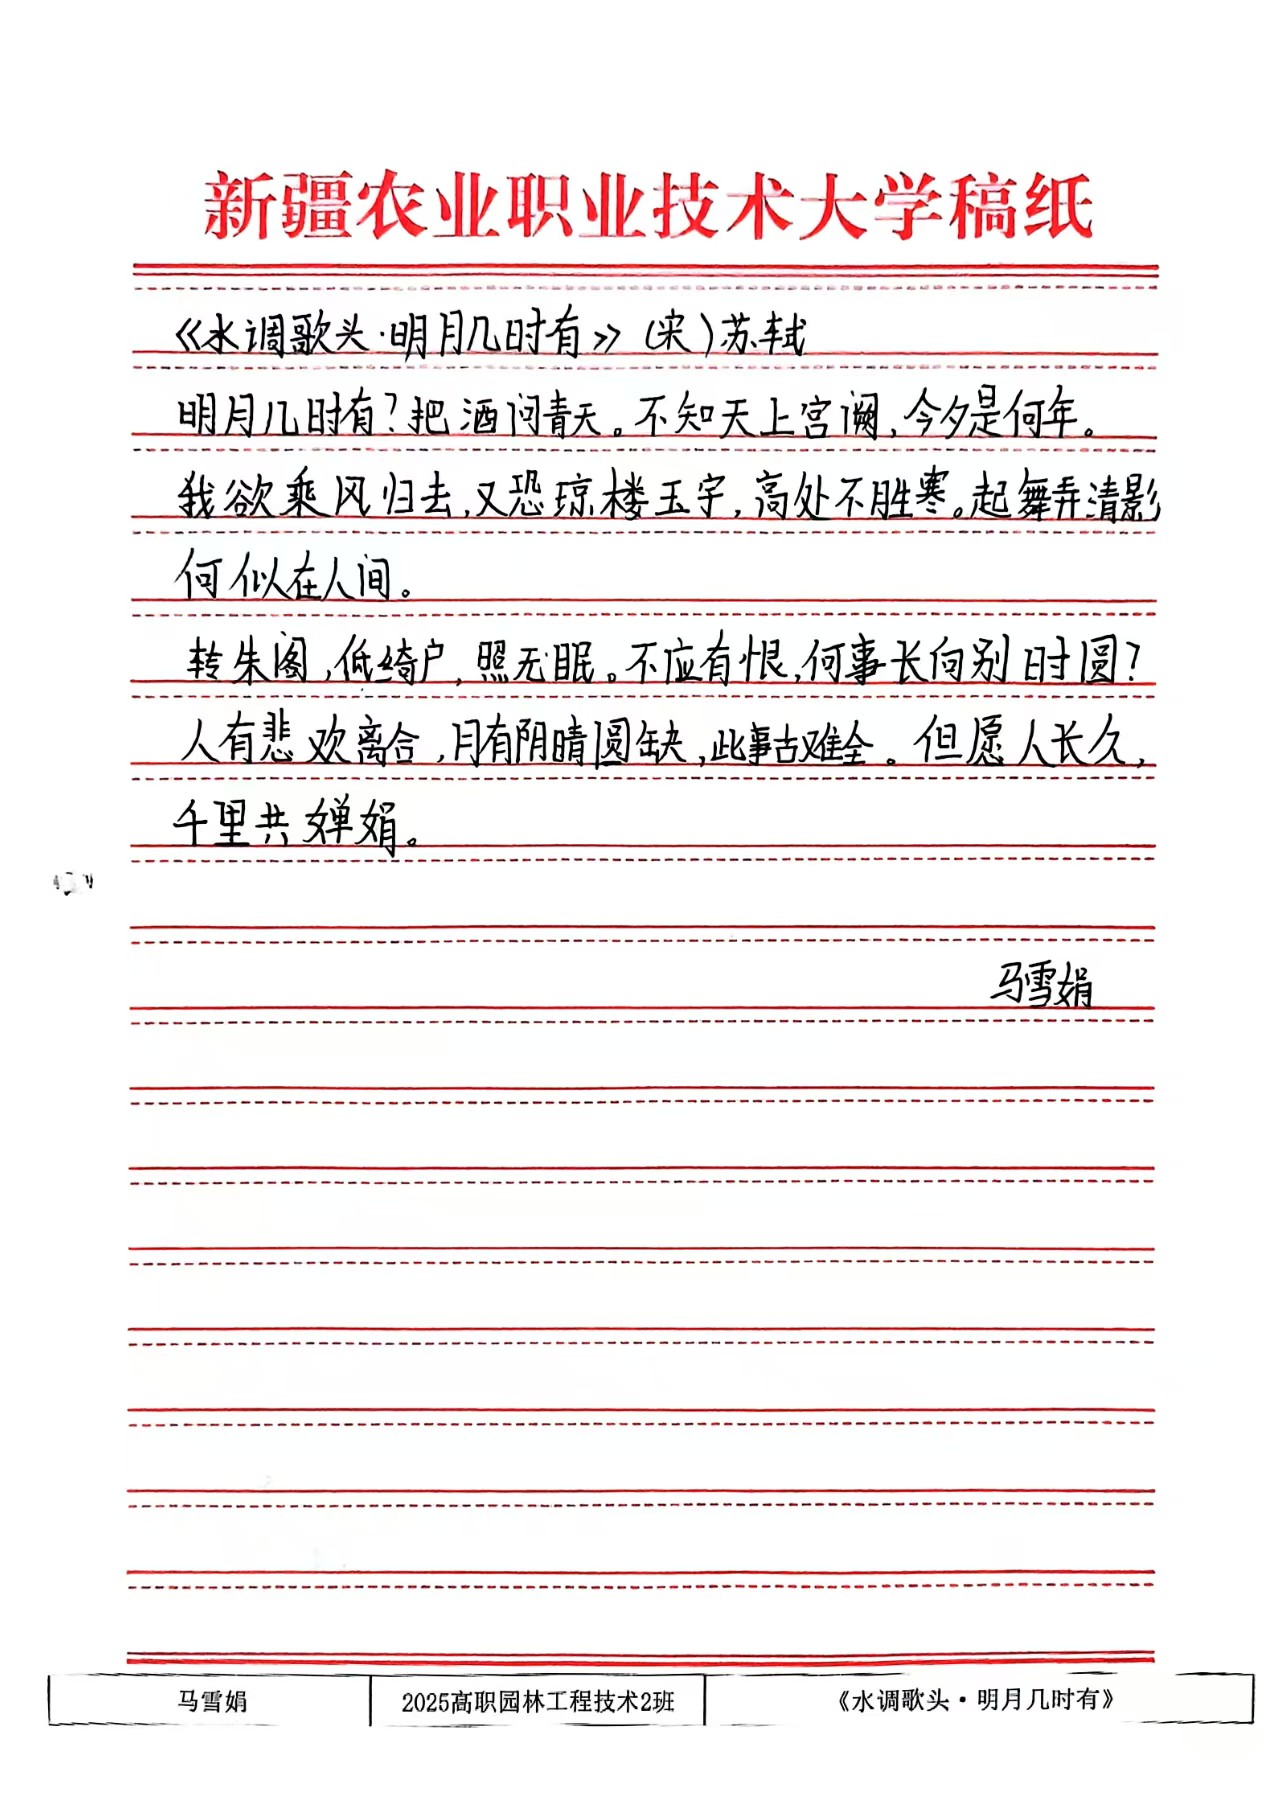 新疆农业职业技术大学稿纸
《水调歌头·明月几时有》(宋)苏轼
明月几时有?把酒问青天。不知天上宫阙,今夕是何年。
我欲乘风归去,又恐琼楼玉宇,高处不胜寒。起舞弄清影
何似在人间。
转朱阁,低绮户,照无眠。不应有恨,何事长向别时圆?
人有悲欢离合,月有阴晴圆缺,此事古难全。但愿人长久,
千里共婵娟。
马雪娟
马雪娟 2025高职园林工程技术2班 《水调歌头·明月几时有》